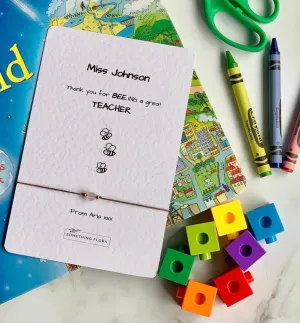 Miss Johnson
Thank you for BEEING a great
TEACHER
From Aria xxx
SOMETHING FLORA